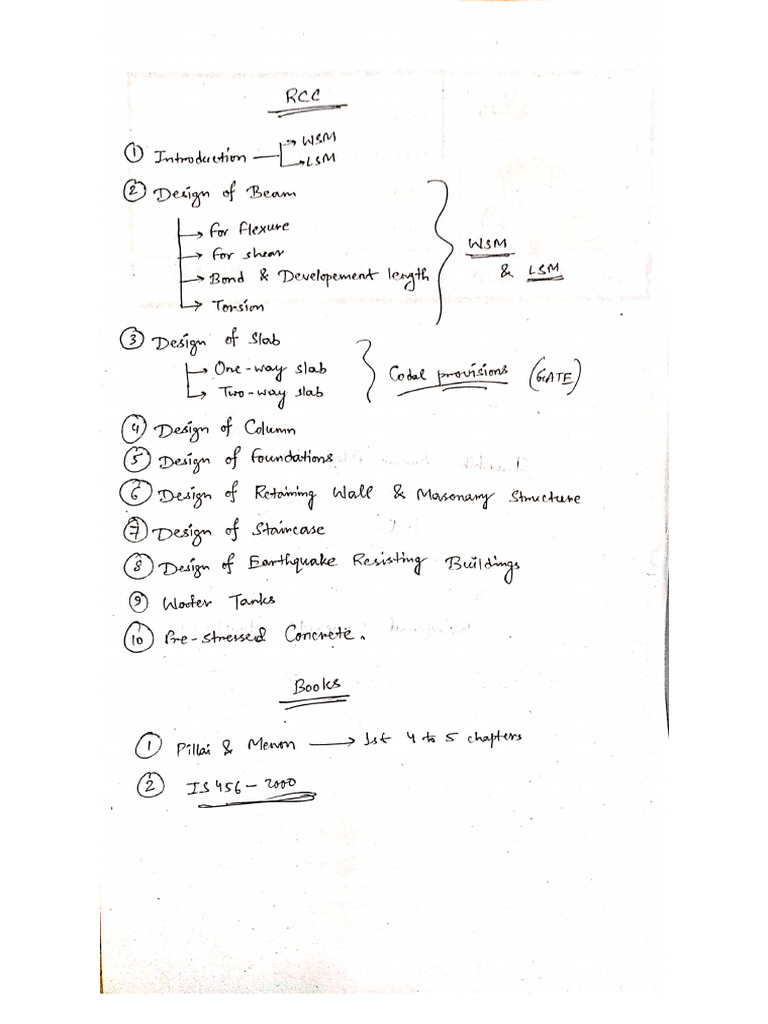 RCC
① Introduction → WSM
→ LSM
② Design of Beam
→ For flexure
→ For shear
WSM
→ Bond & Developement length
& LSM
→ Torsion
③ Design of slab
→ One-way slab
Codal provisions (GATE)
→ Two-way slab
④ Design of Column
⑤ Design of Foundations
⑥ Design of Retaining Wall & Masonary Structure
⑦ Design of Staircase
⑧ Design of Earthquake Resisting Buildings
⑨ Water Tanks
⑩ Pre-stressed Concrete.
Books
① Pillai & Menon → 1st 4 to 5 chapters
② IS 456 - 2000